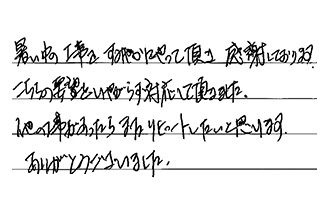 暑い中 工事を すみやかにやって頂き 感謝しております。
こちらの要望をいやがらず対応して頂きました。
他の工事があったら またリピートしたいと思います。
ありがとうございました。